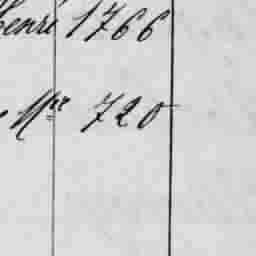 henré 1766
Mre 720